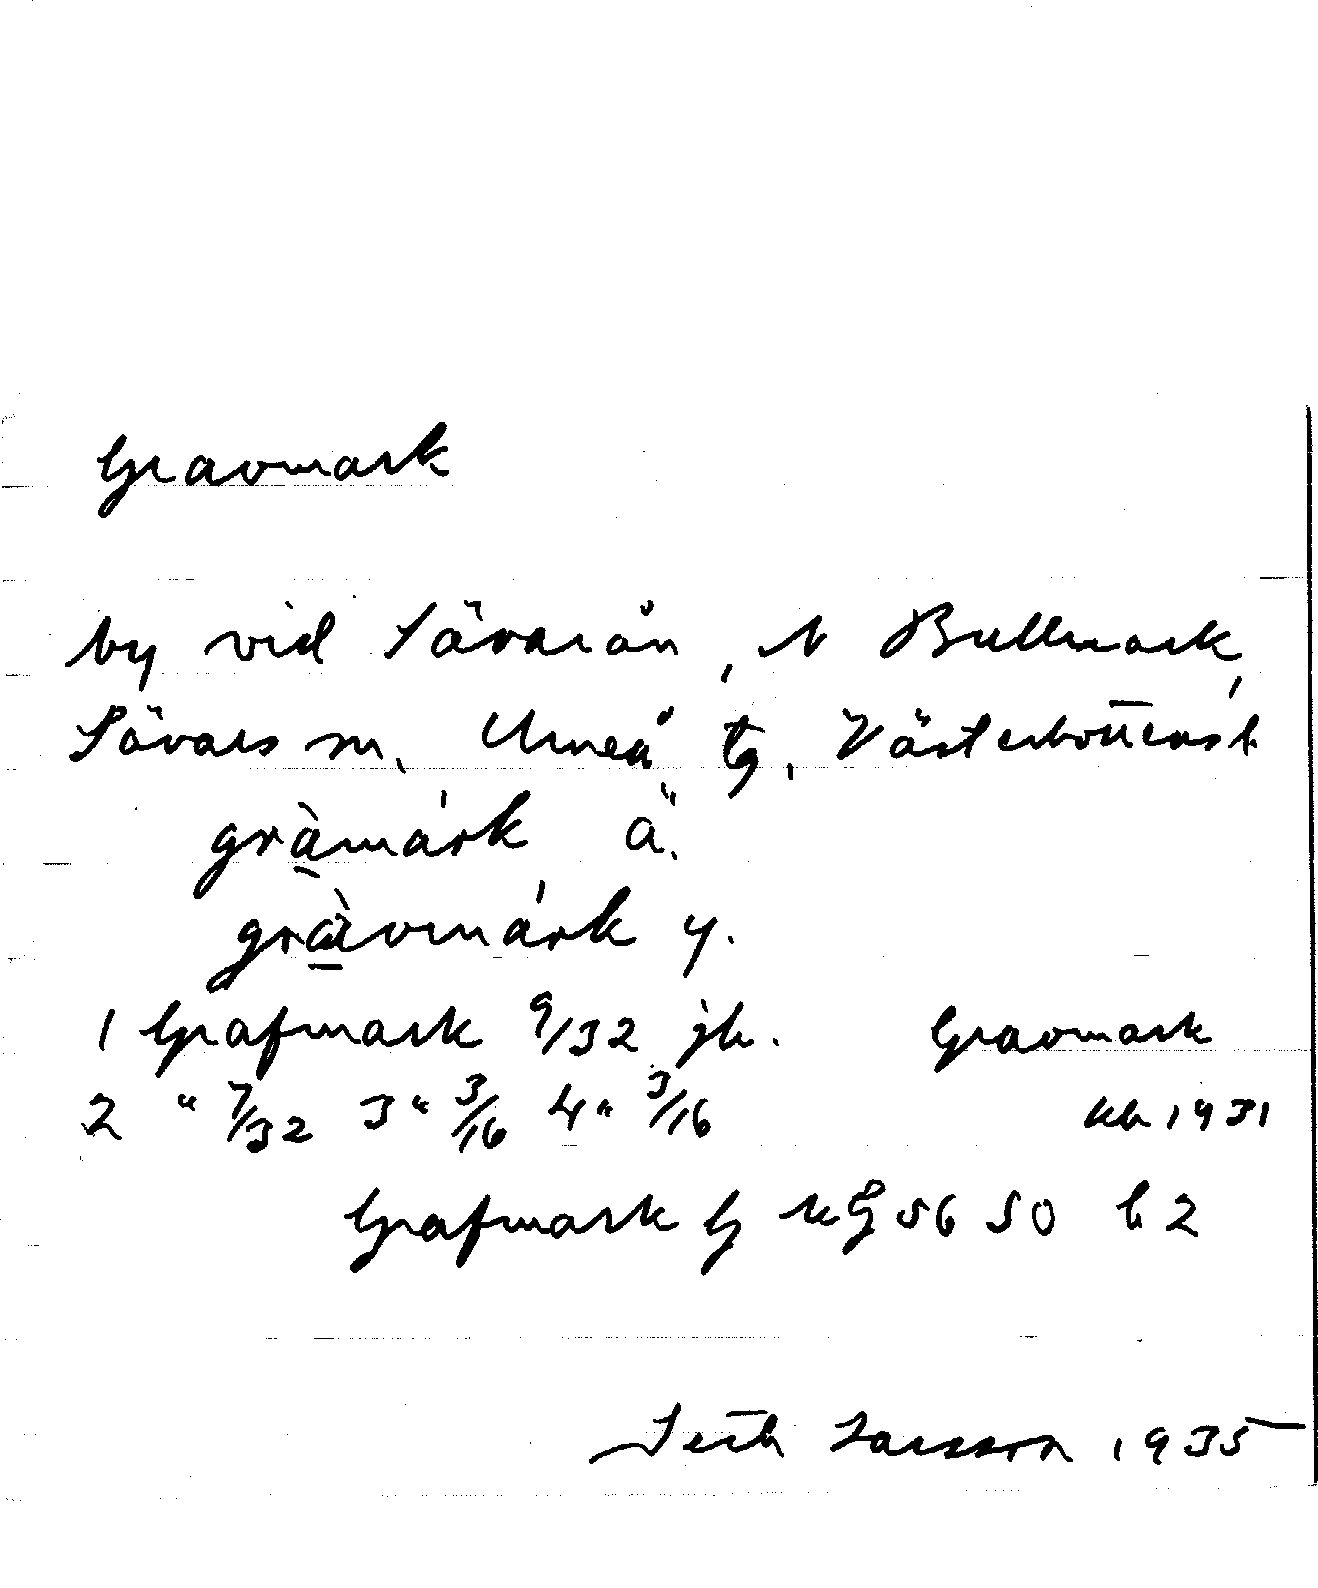 Gravmark
by vid Sävarån, N Bullmark,
Sävars sn, Umeå tg, Västerbottens l.
gràmárk ä.
gràvmárk y.
1 Grafmark 9/32 jb. Gravmark
2 " 7/32 3 " 3/16 4 " 3/16 kb 1931
Grafmark G 56 50 b 2
Seth Larsson 1935